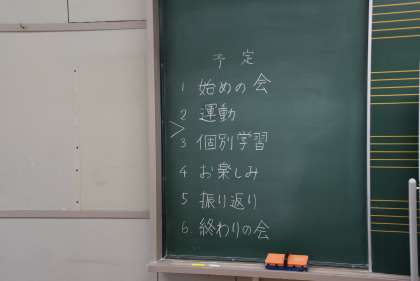 予定
1 始めの会
2 運動
>
3 個別学習
4 お楽しみ
5 振り返り
6 終わりの会